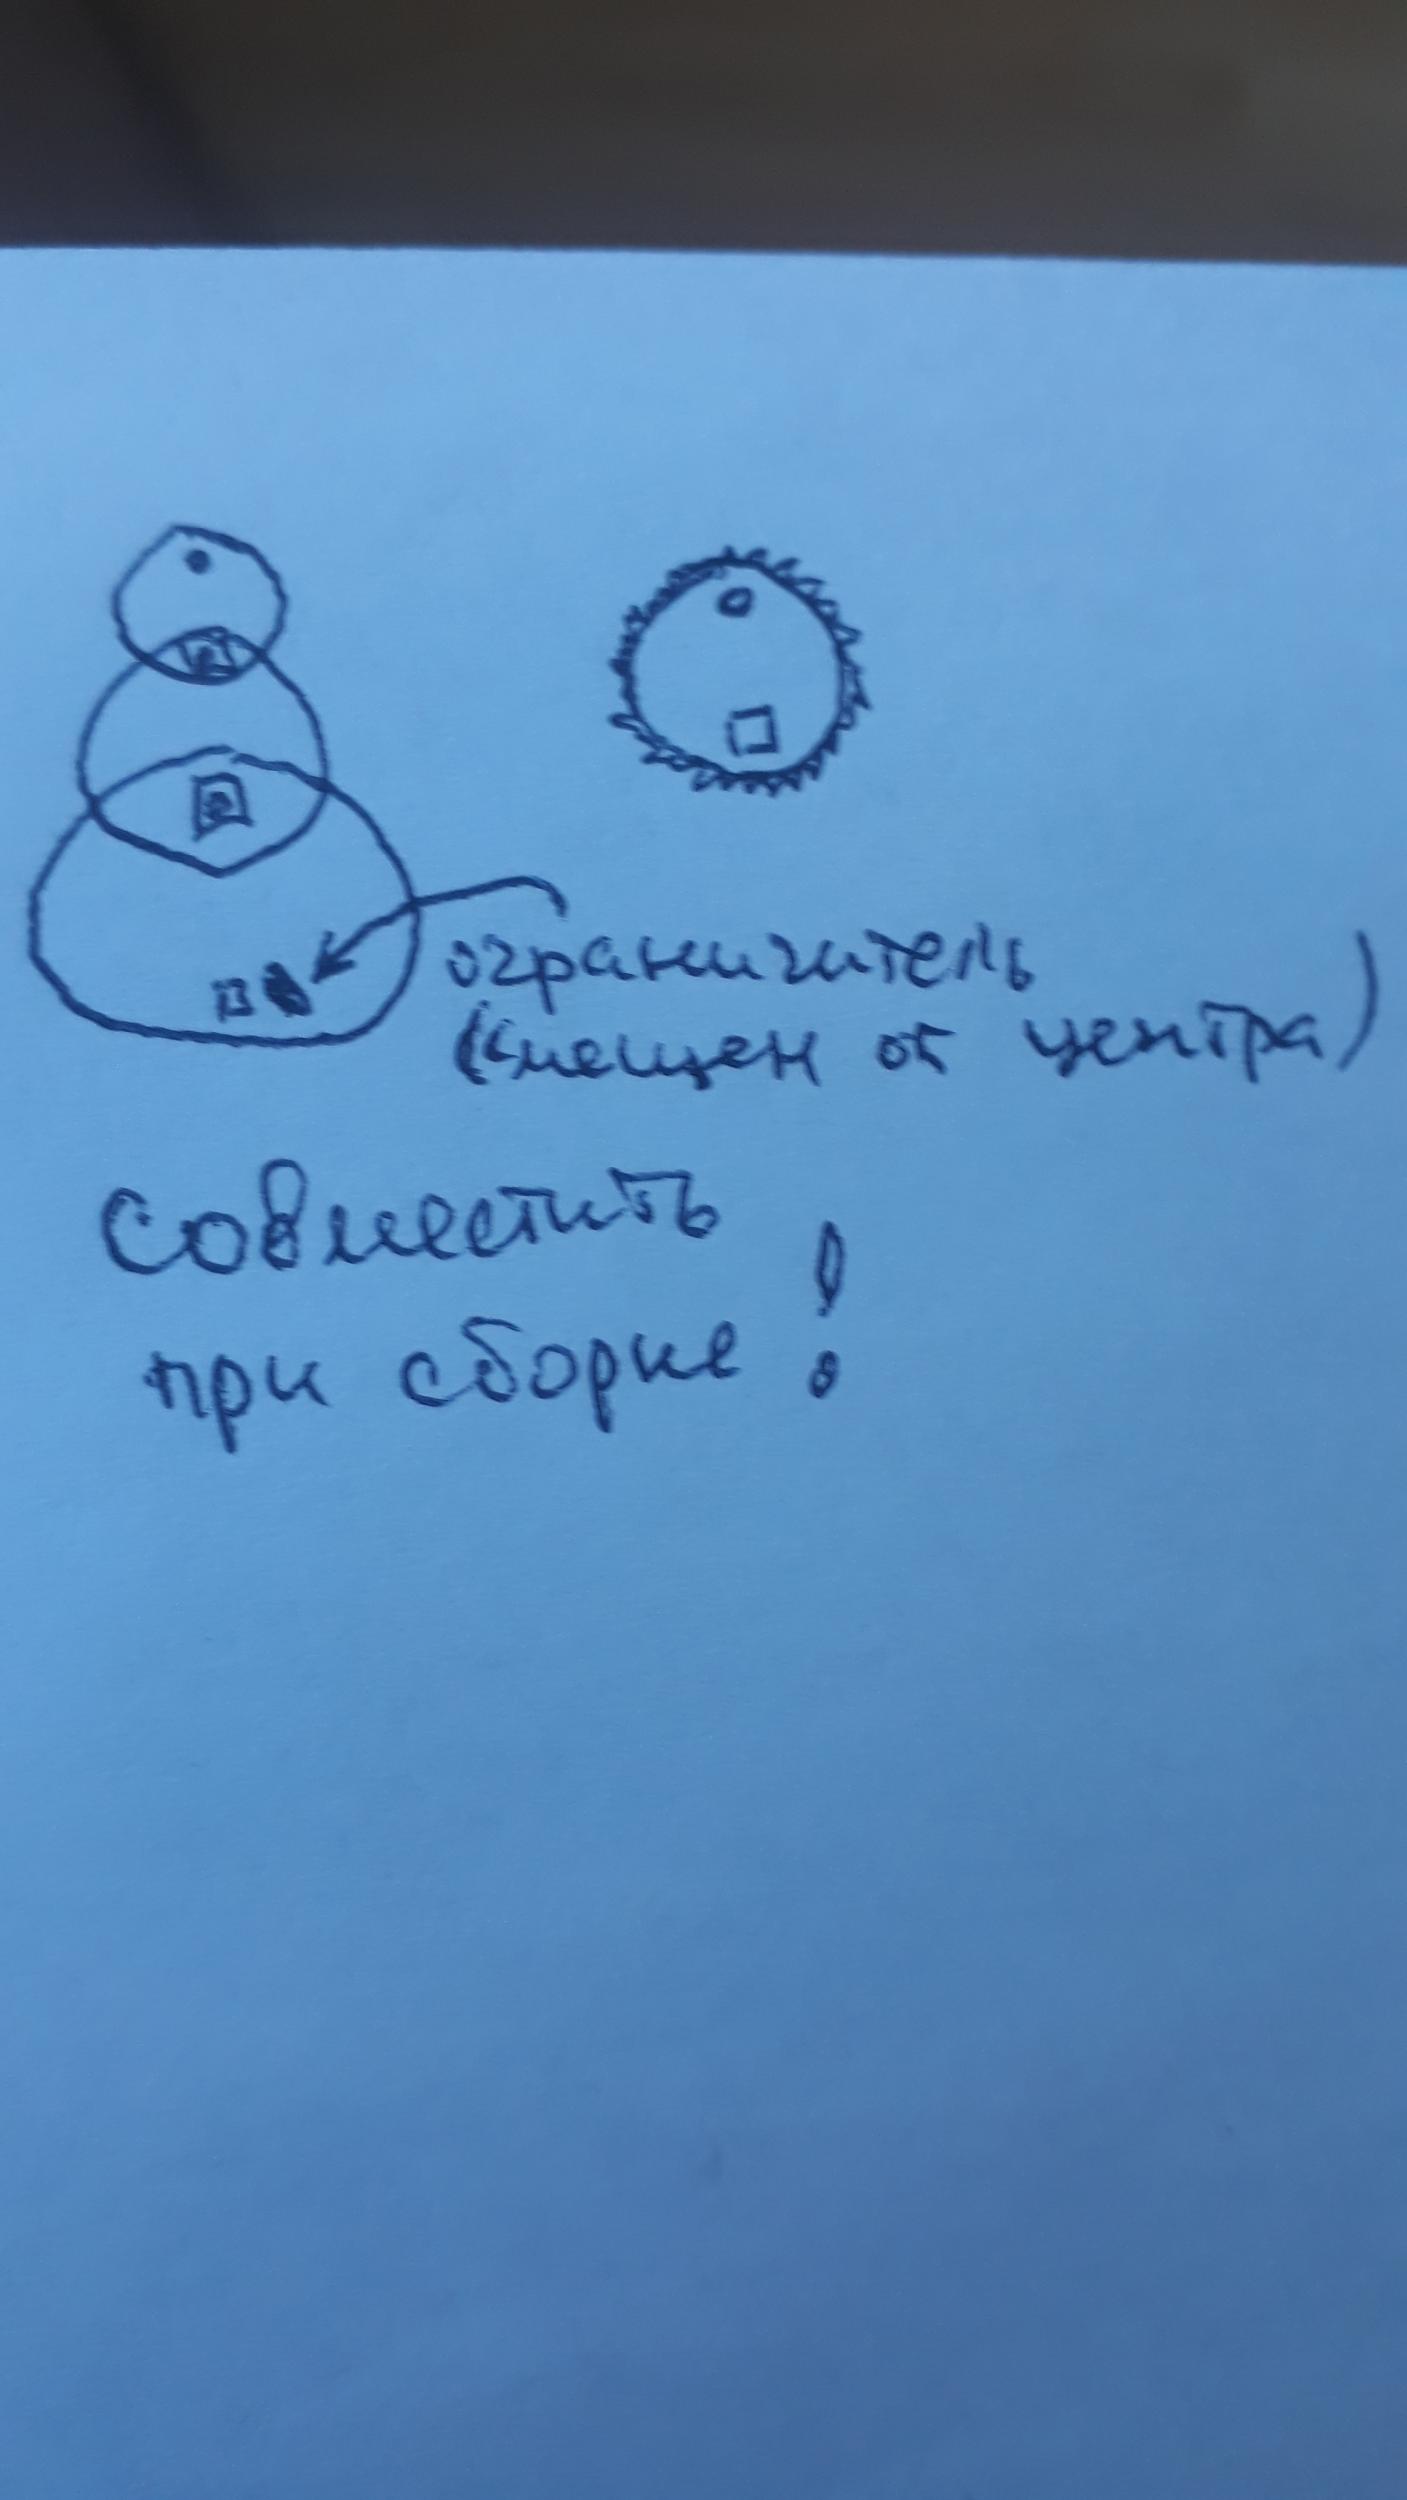 ограничитель
(смещен от центра)
совместить
при сборке!